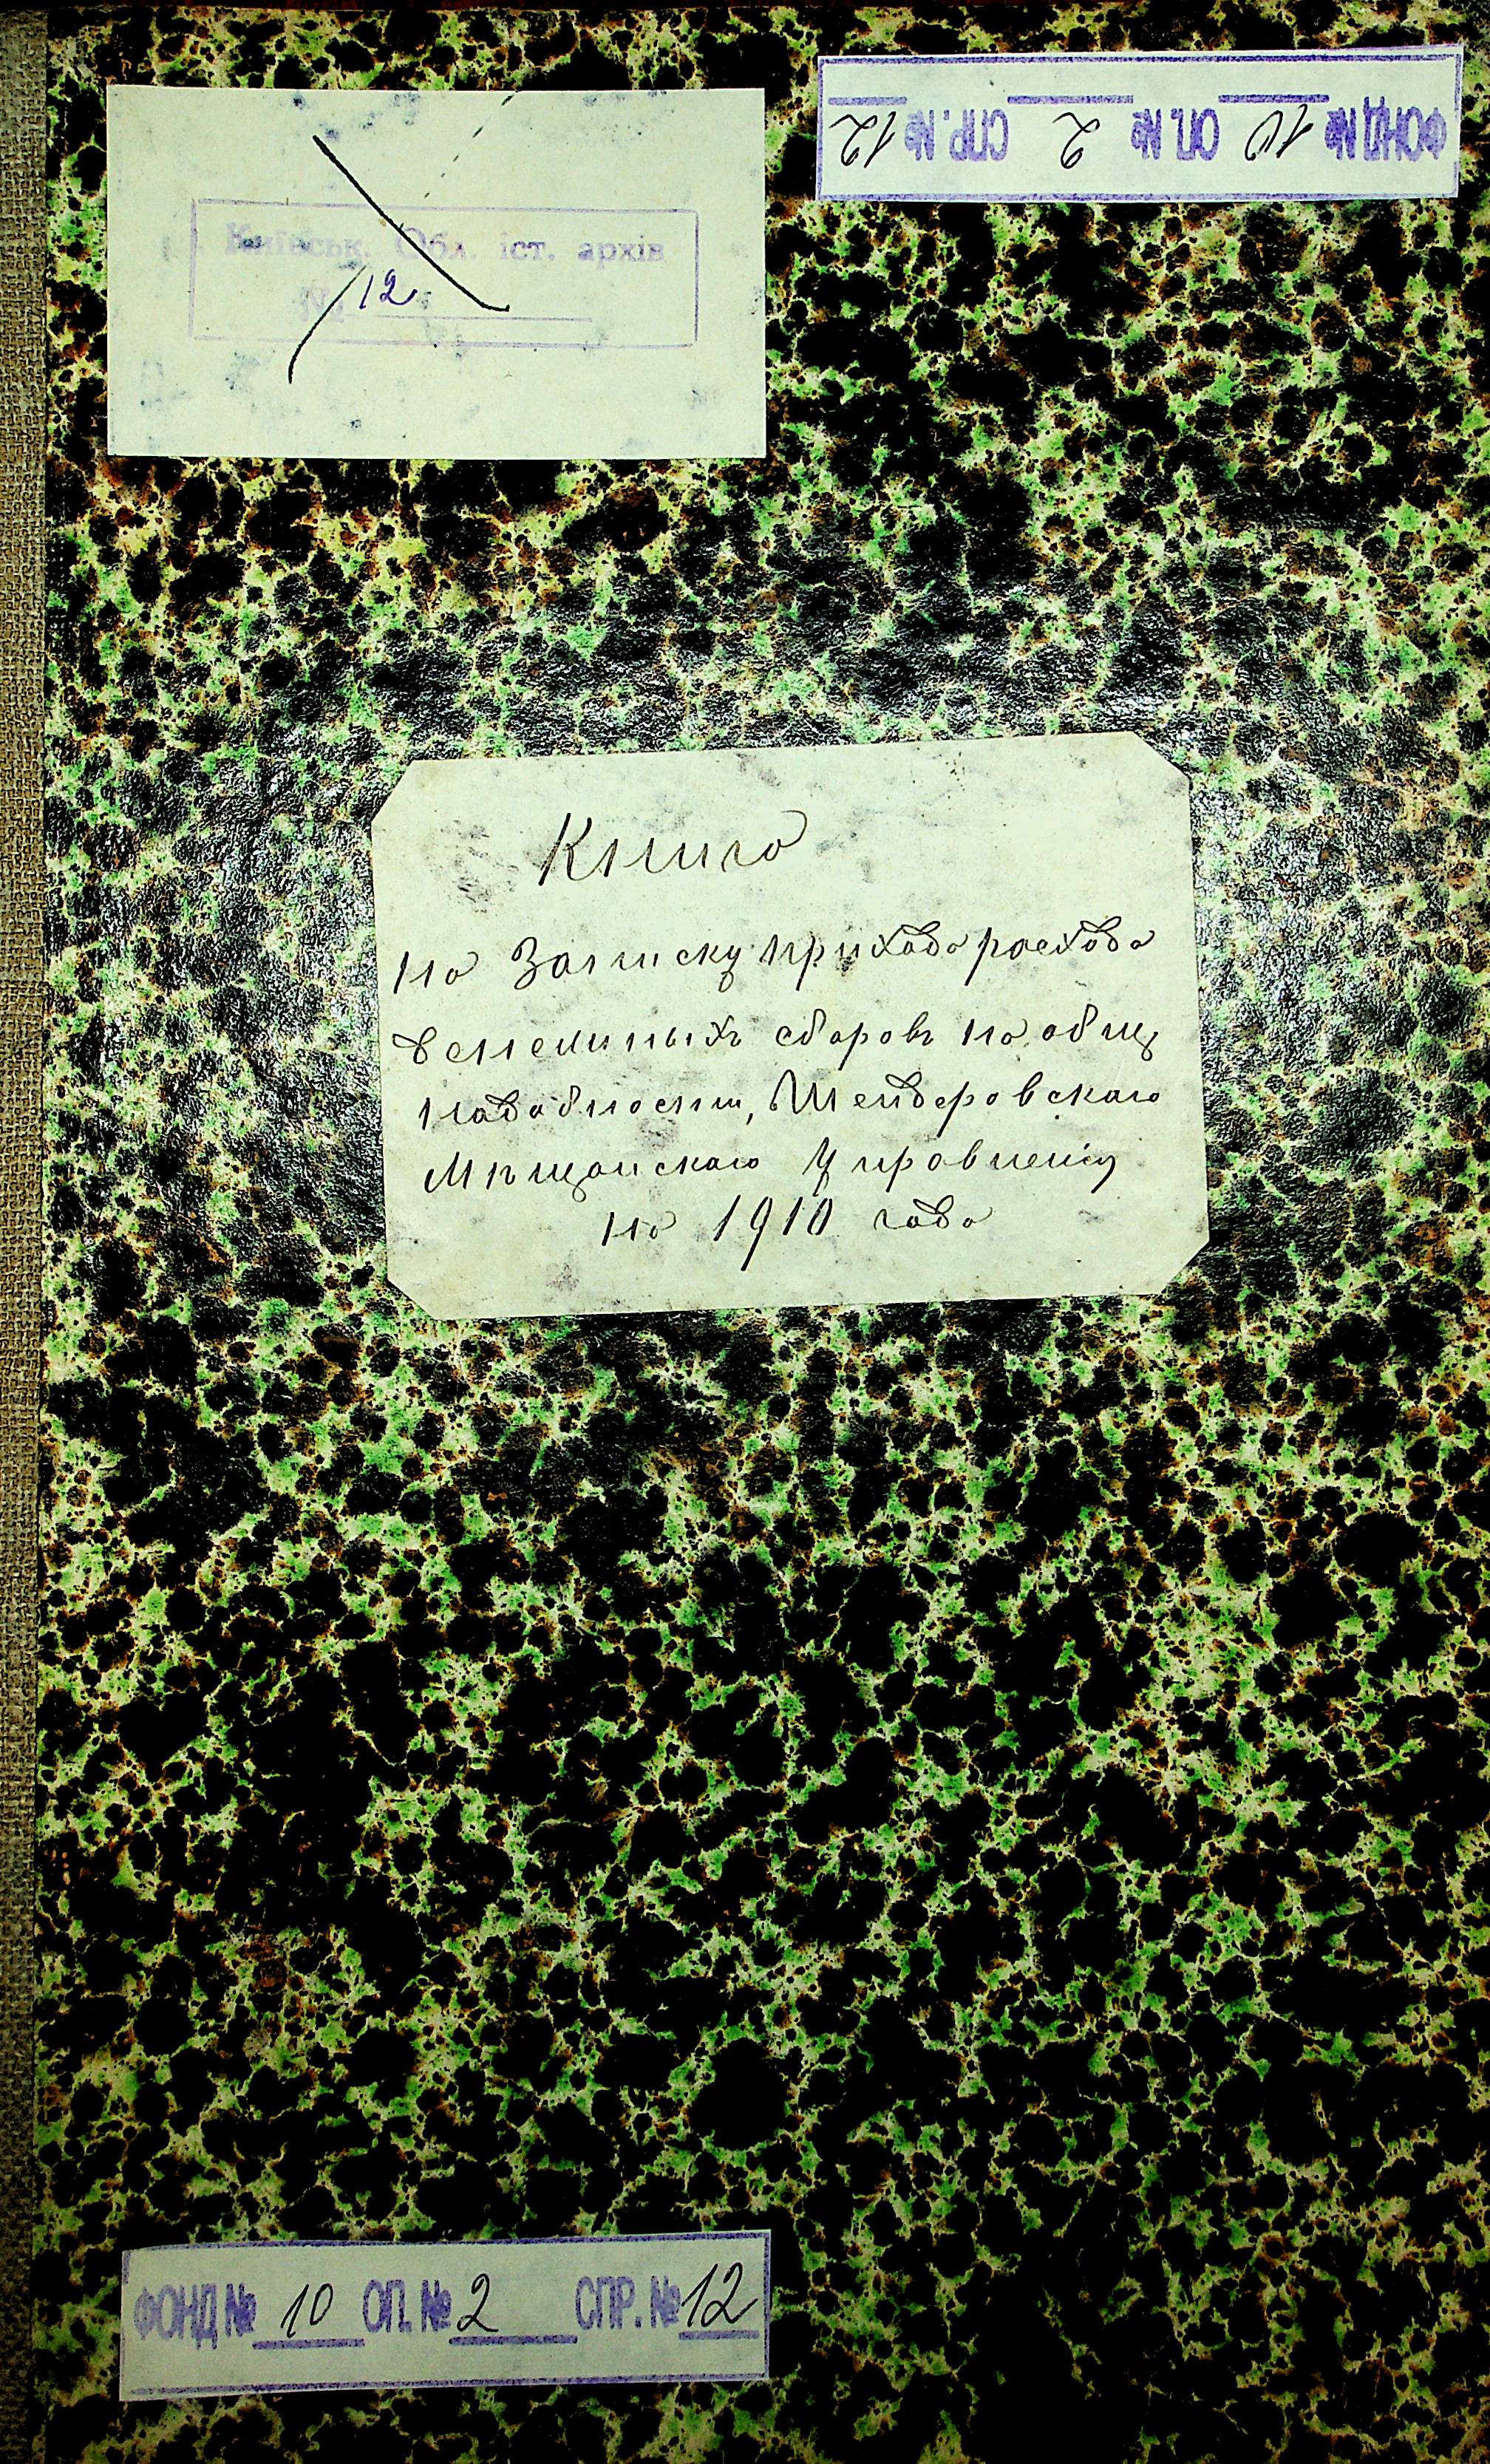 ФОНД № 10 ОП. № 2 СПР. № 12
Київськ. Обл. іст. архів
№ 12
Книга
на Записку прихода расхода
денежныхъ сборовъ на общ
надобности, Шендеровскаго
Мѣщанскаго Управленія
на 1910 года
ФОНД № 10 ОП. № 2 СПР. № 12